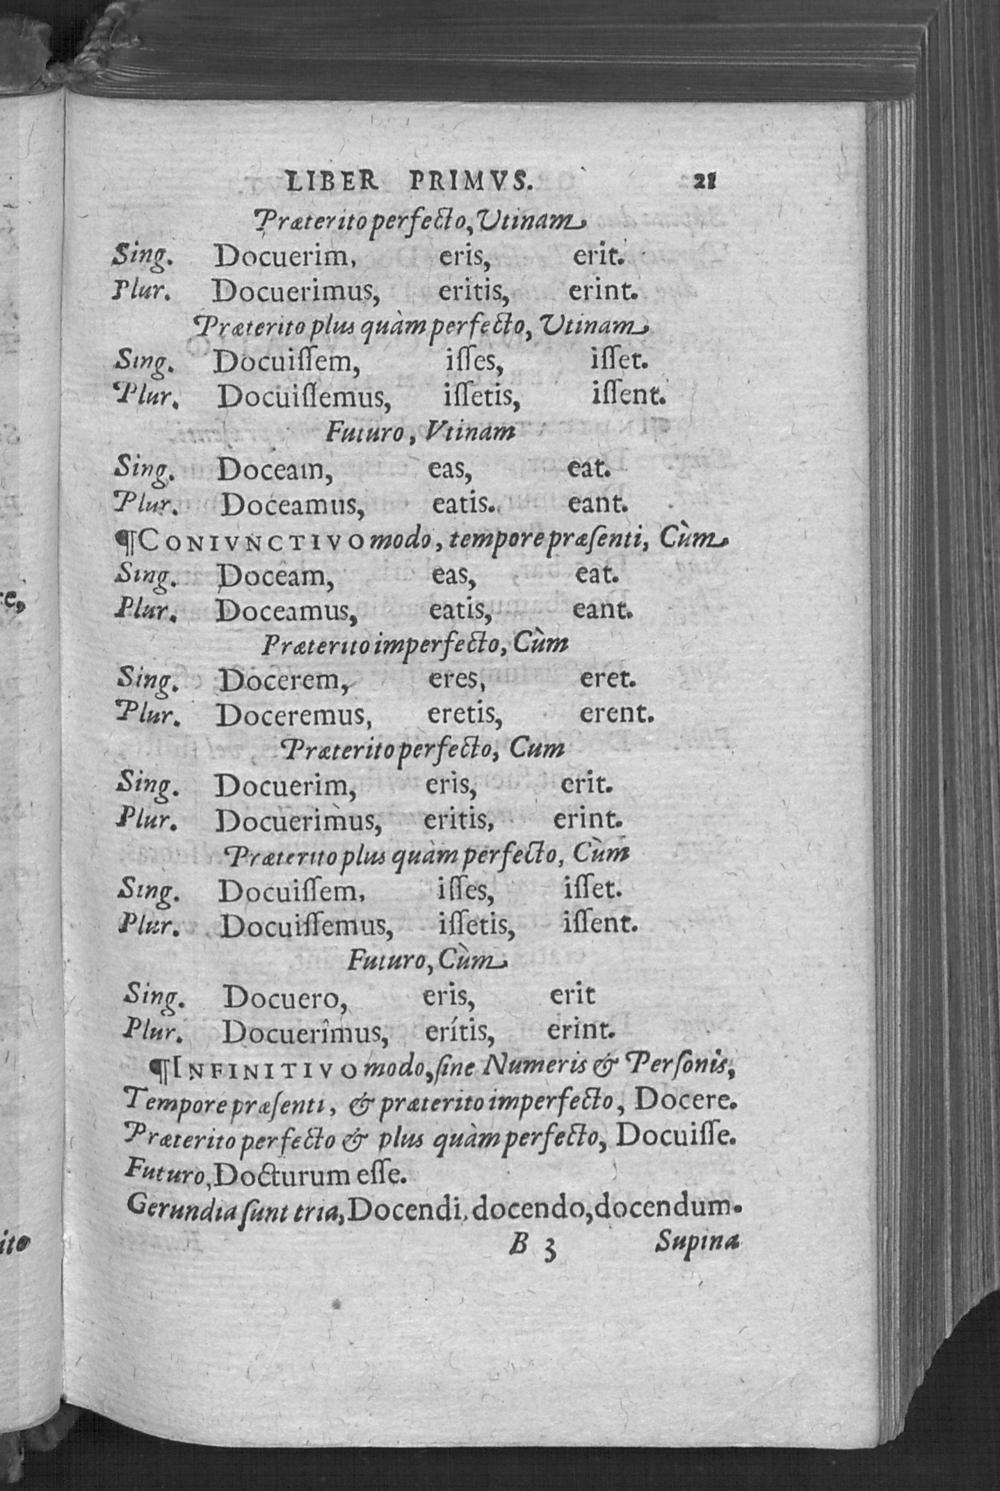 LIBER PRIMVS. 21
Præterito perfecto, Utinam
Sing. Docuerim, eris, erit.
Plur. Docuerimus, eritis, erint.
Præterito plus quàm perfecto, Utinam
Sing. Docuiſſem, iſſes, iſſet.
Plur. Docuiſſemus, iſſetis, iſſent.
Futuro, Vtinam
Sing. Doceam, eas, eat.
Plur. Doceamus, eatis. eant.
¶CONIVNCTIVO modo, tempore præſenti, Cùm
Sing. Doceam, eas, eat.
Plur. Doceamus, eatis, eant.
Præterito imperfecto, Cùm
Sing. Docerem, eres, eret.
Plur. Doceremus, eretis, erent.
Præterito perfecto, Cum
Sing. Docuerim, eris, erit.
Plur. Docuerimus, eritis, erint.
Præterito plus quàm perfecto, Cùm
Sing. Docuiſſem, iſſes, iſſet.
Plur. Docuiſſemus, iſſetis, iſſent.
Futuro, Cùm
Sing. Docuero, eris, erit
Plur. Docuerîmus, erítis, erint.
¶INFINITIVO modo, ſine Numeris & Perſonis,
Tempore præſenti, & præterito imperfecto, Docere.
Præterito perfecto & plus quàm perfecto, Docuiſſe.
Futuro, Docturum eſſe.
Gerundia ſunt tria, Docendi, docendo, docendum.
B 3 Supina